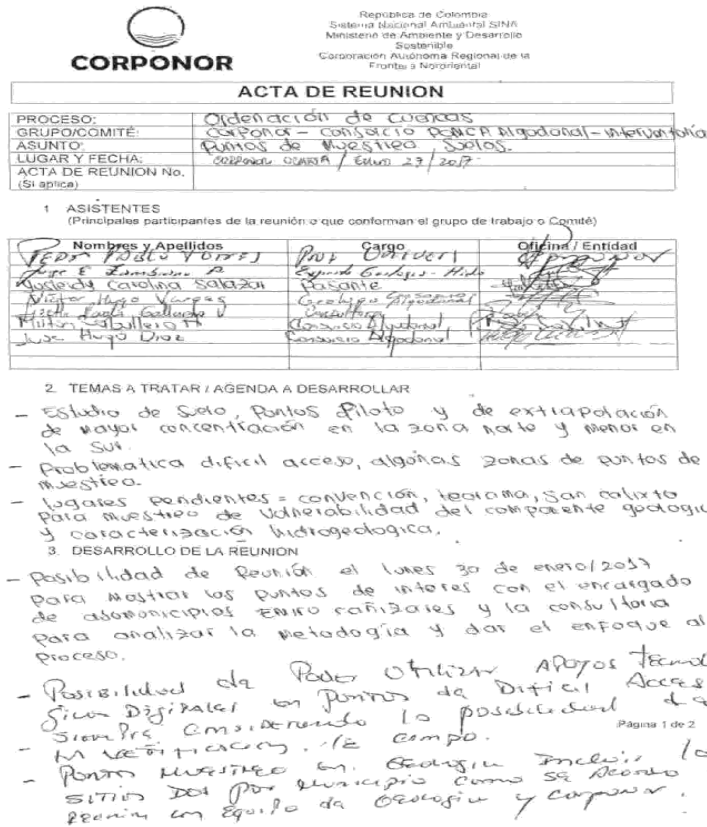 República de Colombia
Sistema Nacional Ambiental SINA
Ministerio de Ambiente y Desarrollo
Sostenible
Corporación Autónoma Regional de la
Frontera Nororiental
CORPONOR
ACTA DE REUNION
PROCESO: Ordenación de Cuencas
GRUPO/COMITÉ: Corponor - Consorcio POMCA Algodonal - Interventoría
ASUNTO: Puntos de Muestreo Suelos.
LUGAR Y FECHA: CORPONOR OCAÑA / Enero 27/2017
ACTA DE REUNION No.
(Si aplica)
1 ASISTENTES
(Principales participantes de la reunión o que conforman el grupo de trabajo o Comité)
Nombres y Apellidos Cargo Oficina / Entidad
Jorge E Zambrano R Experto Geología - Hidro
Carolina Salazar Pasante
Victor Hugo Vargas Geologo Consorcio Algodonal
Consultoria
Milton Caballero Consorcio Algodonal
Jose Hugo Diaz Consorcio Algodonal
2. TEMAS A TRATAR / AGENDA A DESARROLLAR
- Estudio de Suelo, Puntos Piloto y de extrapolación
de mayor concentración en la zona norte y menor en
la Sur.
- Problematica dificil acceso, algunas zonas de puntos de
muestreo.
- lugares pendientes = convención, teorama, San calixto
para muestreo de vulnerabilidad del componente geologic
y caracterización hidrogeologica.
3. DESARROLLO DE LA REUNIÓN
- Posibilidad de Reunión el lunes 30 de enero/2017
para mostrar los puntos de interes con el encargado
de asomunicipios cañizares y la consultoria
para analizar la metodogia y dar el enfoque al
Proceso.
- Posibilidad de Poder Utilizar Apoyos Tecnol
gicos Digitales en Puntos de Dificil Acces
Siempre considerando la posibilidad de
Página 1 de 2
- la verificacion de campo.
- Puntos muestreo en Geologia Incluir lo
sitios Dos por Municipio como se Acordo
Reunion con Equipo de Geologia y corponor.